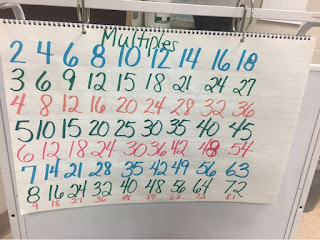 Multiples
2 4 6 8 10 12 14 16 18
3 6 9 12 15 18 21 24 27
4 8 12 16 20 24 28 32 36
5 10 15 20 25 30 35 40 45
6 12 18 24 30 36 42 48 54
7 14 21 28 35 42 49 56 63
8 16 24 32 40 48 56 64 72
9 18 27 36 45 54 63 72 81